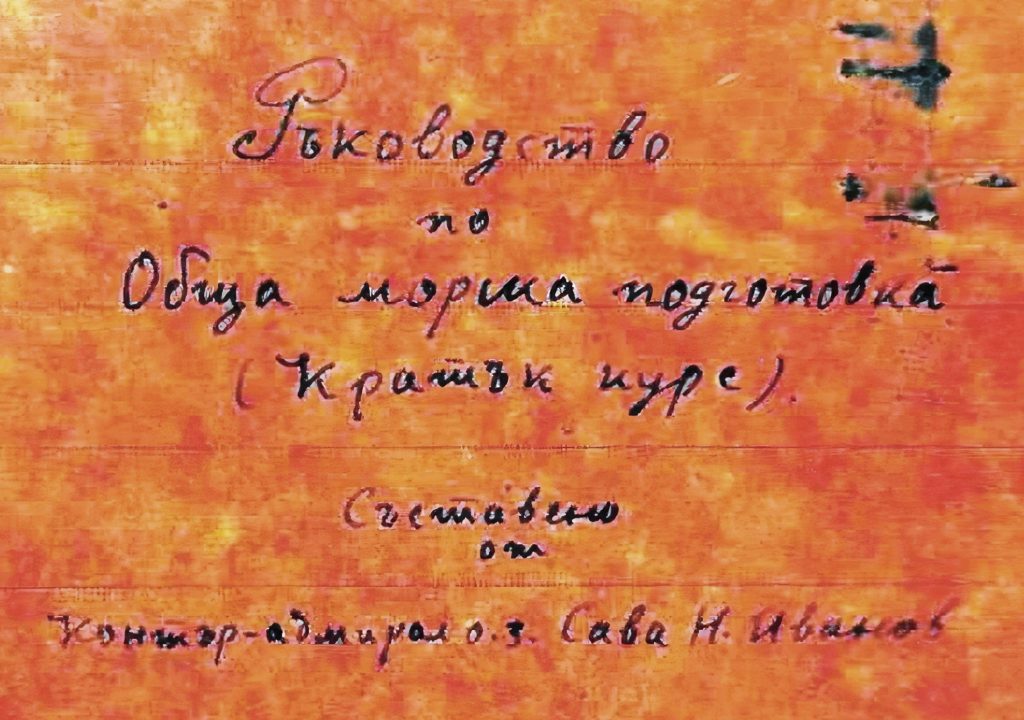 Ръководство
по
Обща морска подготовка
(Кратък курс).
Съставено
от
Контър-адмирал о.з. Сава Н. Иванов